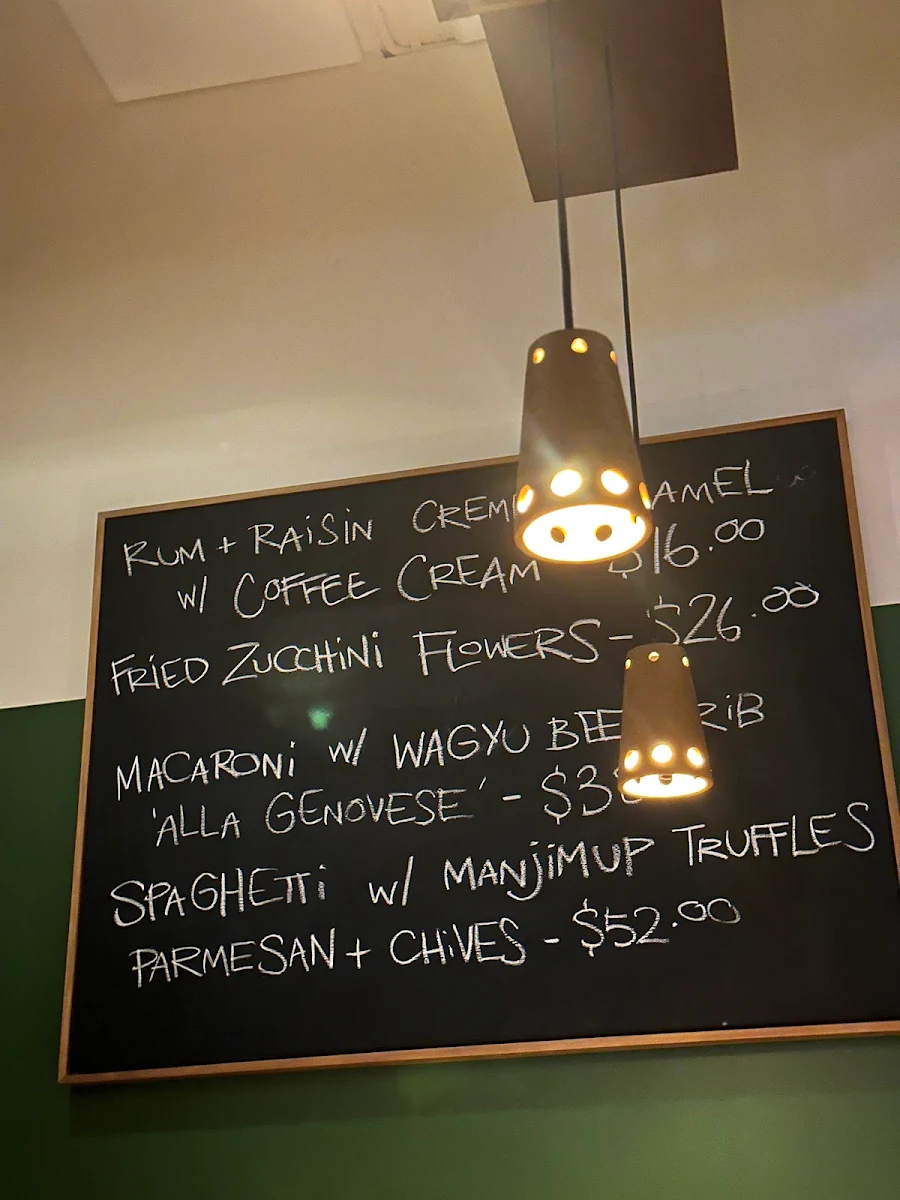 RUM + RAiSiN CREM AMEL
w/ COFFEE CREAM $16.00
FRiED ZUCCHiNi FLOWERS - $26.00
MACARONi w/ WAGYU BEE RiB
'ALLA GENOVESE' - $3
SPAGHETTi w/ MANJiMUP TRUFFLES
PARMESAN + CHiVES - $52.00